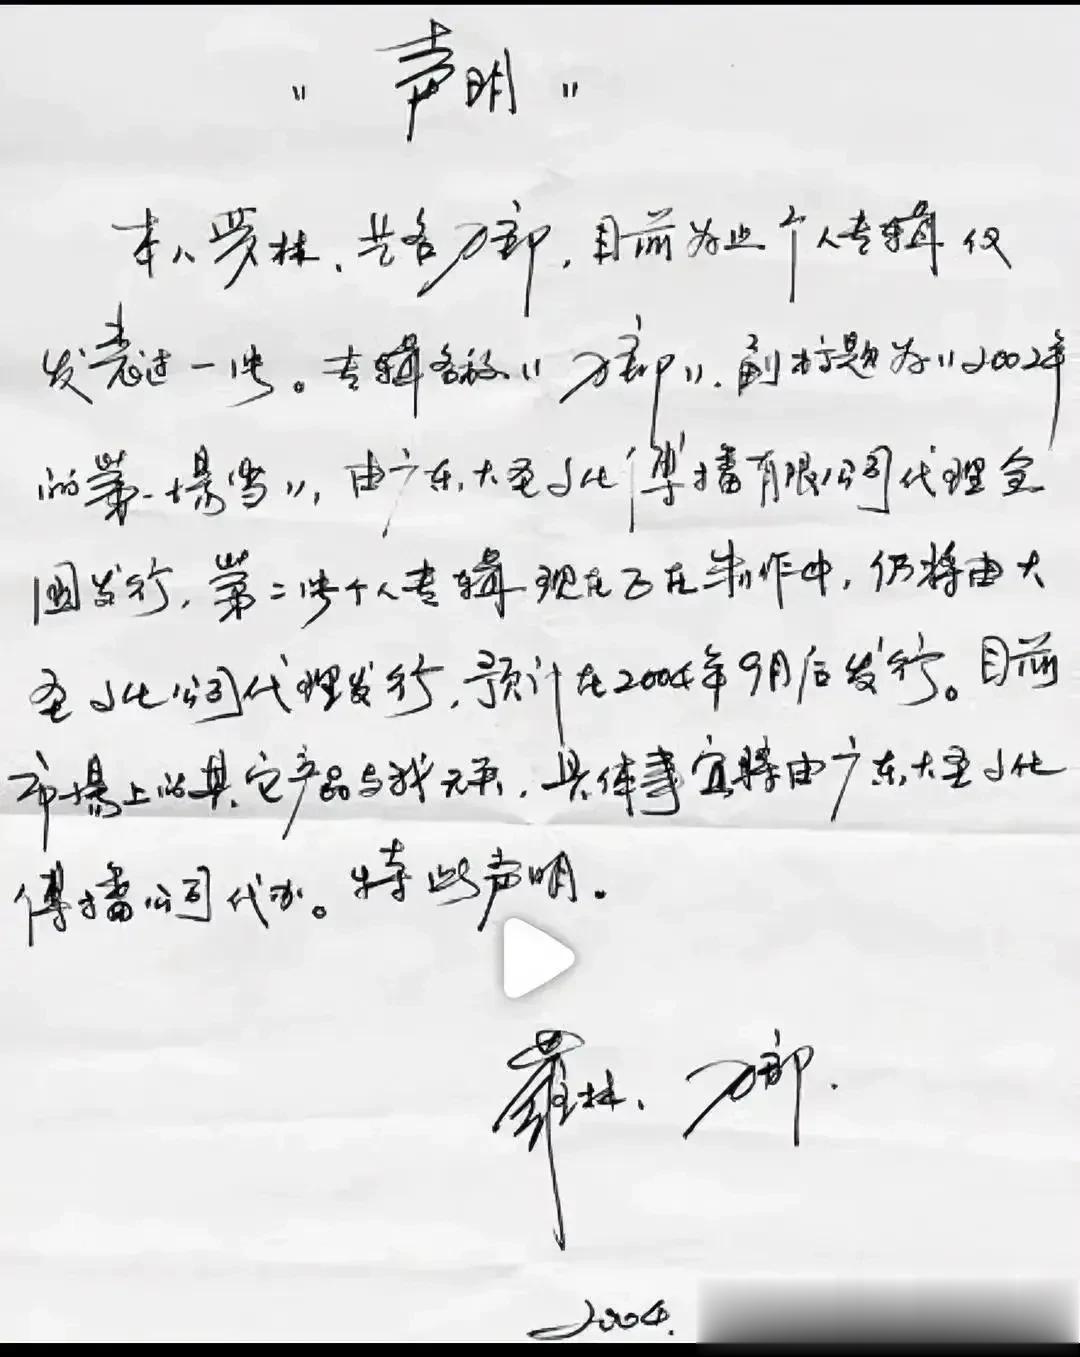 "声明"
本人罗林、艺名刀郎,目前为止个人专辑仅
发表过一张。专辑名称"刀郎",副标题为"2002年
的第一场雪",由广东大圣文化傳播有限公司代理全
国发行,第二张个人专辑现在正在制作中,仍将由大
圣文化公司代理发行,预计在2004年9月后发行。目前
市场上的其它产品与我无关,具体事宜將由广东大圣文化
傳播公司代办。特此声明。
羅林、刀郎.
2004.